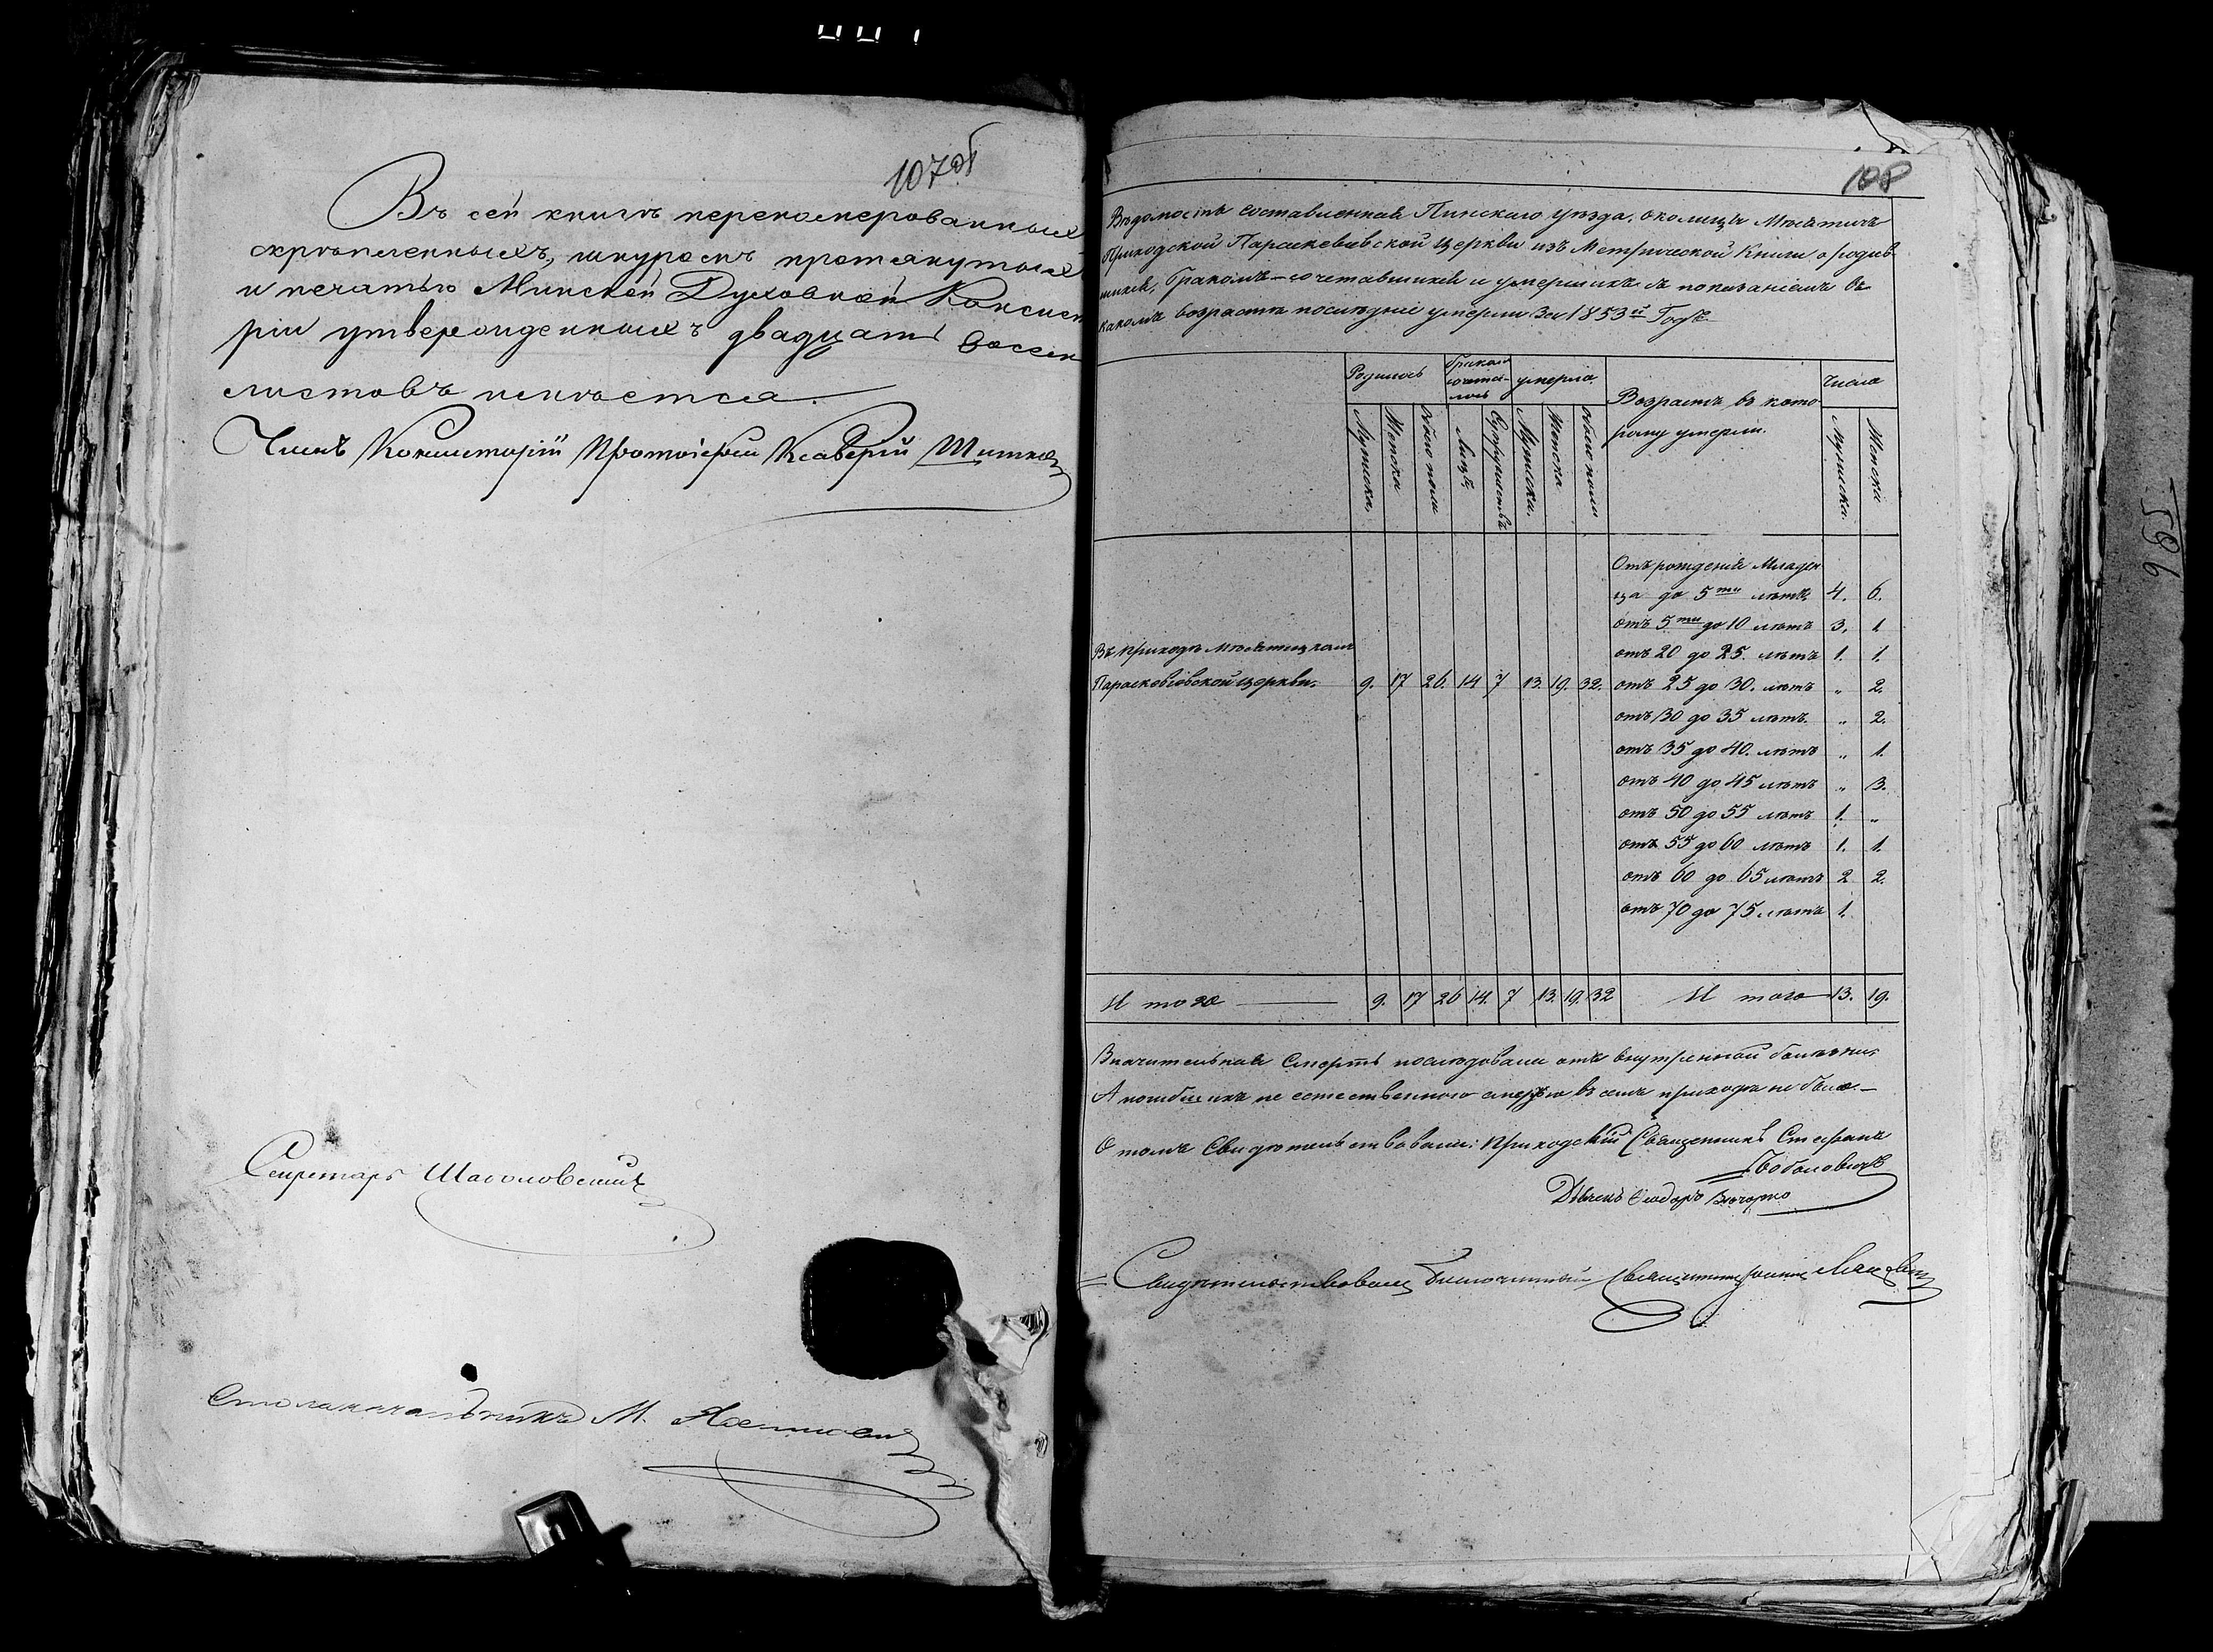 107об
Въ сей книгѣ перепомерованныхъ
скрѣпленныхъ, шнуромъ протянутыхъ
и печатью Минской Духовной Консисто
ріи утвержденныхъ двадцать восемь
листовъ имѣется.
Членъ Консисторіи Протоіерей Ксаверій
Секретарь
Столоначальникъ М.
108
Вѣдомость составленная Пинскаго уѣзда, околицы Мѣстичъ
Приходской Параскевіевской церкви изъ Метрической Книги о родив
шихся, бракомъ-сочетавшихся и умершихъ съ показаніемъ въ
какомъ возрастѣ послѣдніе умерли За 1853й Годъ
Родилось
бракомъ
сочета-
лось
умерло
Возрастъ въ кото
рому умерли.
Число
Мужеска
Женска
Обоего пола
Лицъ
Супружествъ
Мужеска
Женска
Обоего пола
Мужеска
Женска
Отъ рожденія Младен
ца до 5ти лѣтъ 4. 6.
отъ 5ти до 10 лѣтъ 3. 1.
Въ приходѣ
отъ 20 до 25. лѣтъ 1. 1.
Параскевіевской церкви. 9. 17 26. 14 7 13. 19. 32. отъ 25 до 30. лѣтъ „ 2.
отъ 30 до 35 лѣтъ. „ 2.
отъ 35 до 40. лѣтъ „ 1.
отъ 40 до 45 лѣтъ „ 3.
отъ 50 до 55 лѣтъ 1. „
отъ 55 до 60 лѣтъ 1. 1.
отъ 60 до 65 лѣтъ 2 2.
отъ 70 до 75 лѣтъ 1.
И того 9. 17 26 14. 7 13. 19. 32 И того 13. 19.
Значительная Смерть послѣдовала отъ внутренной болѣзни,
А погибшихъ не естественною смертію въ семъ приходѣ не было.—
О томъ Свидѣтельствовали: Приходскій Священникъ Стефанъ
Дьячекъ Ѳеодоръ
Свидѣтельствовалъ Благочинный Священникъ
965